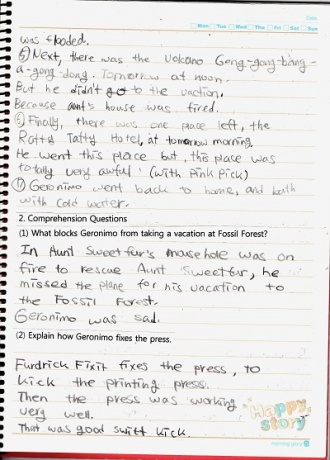 Date.
Mon Tue Wed Thu Fri Sat Sun
was flooded.
⑤ Next, there was the volcano Geng-gong-bang-
a-gong-dong. Tomorrow at noon.
But he didn't go to the vaction.
Because aunt's house was fired.
⑥ Finally, there was one place left, the
Ratty Tatty Hotel, at tomorrow morning.
He went this place but, this place was
totally very awful! (with Pink Pick)
⑦ Geronimo went back to home, and bath
with cold water.
2. Comprehension Questions
(1) What blocks Geronimo from taking a vacation at Fossil Forest?
In Aunt Sweetfur's mousehole was on
fire to rescue Aunt Sweetfur, he
missed the plane for his vacation to
the Fossil Forest.
Geronimo was sad.
(2) Explain how Geronimo fixes the press.
Furdrick Fixit fixes the press, to
kick the printing press.
Then the press was working
very well.
That was good swift kick.
Happy
story
morning glory